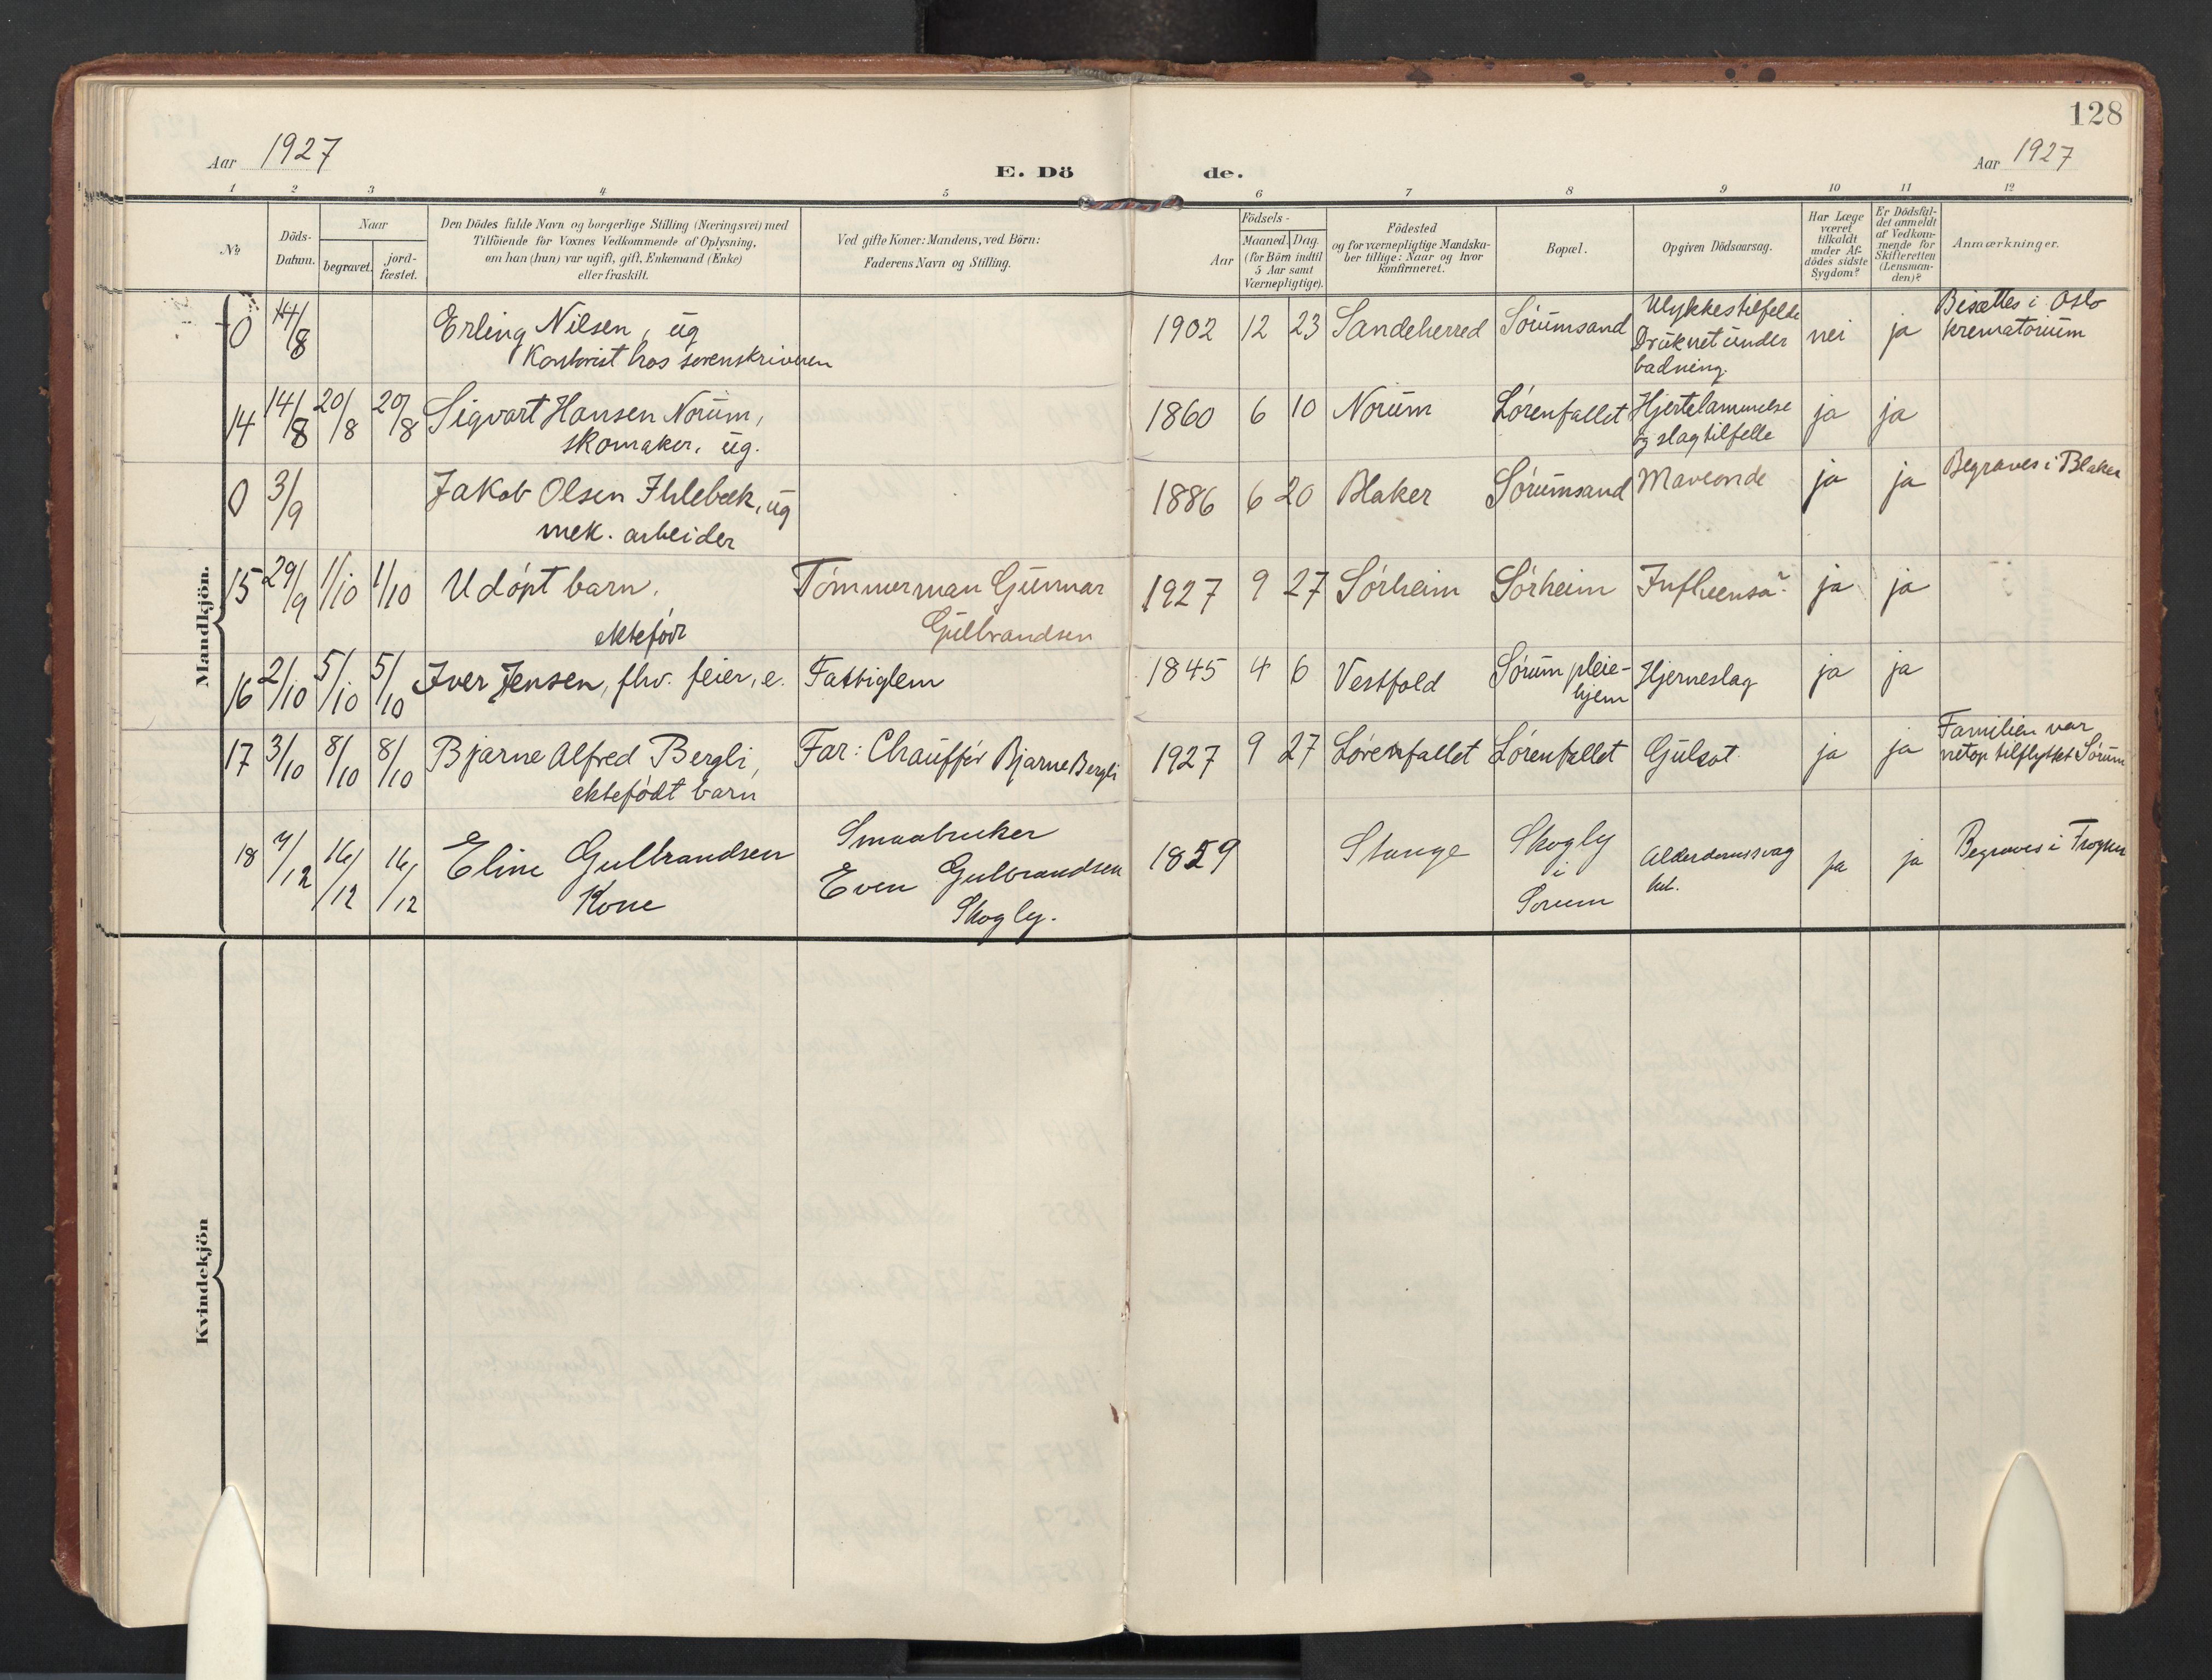 128
Aar 1927
E. Dö
de.
Aar 1927
1 2 3 4 5 6 7 8 9 10 11 12
No
Döds-
Datum.
Naar
begravet.
jord-
fæstet.
Den Dödes fulde Navn og borgerlige Stilling (Næringsvei) med
Tilföiende for Voxnes Vedkommende af Oplysning,
om han (hun) var ugift, gift, Enkemand (Enke)
eller fraskilt.
Ved gifte Koner: Mandens, ved Börn:
Faderens Navn og Stilling.
Födsels-
Aar
Maaned.
Dag.
(for Börn indtil
5 Aar samt
Værnepligtige).
Födested
og for værnepligtige Mandska-
ber tillige: Naar og hvor
konfirmeret.
Bopæl.
Opgiven Dödsaarsag.
Har Læge
været
tilkaldt
under Af-
dödes sidste
Sygdom?
Er Dödsfal-
det anmeldt
af Vedkom-
mende for
Skifteretten
(Lensman-
den)?
Anmærkninger.
Mandkjön.
0 14/8 Erling Nilsen, ug 1902 12 23 Sandeherred Sørumsand Ulykkestilfelde nei ja Bisættes i Oslo
Kontorist hos sorenskriveren Druknet under krematorium
badning.
14 14/8 20/8 20/8 Sigvart Hansen Norum, 1860 6 10 Norum Lørenfallet Hjertelammelse ja ja
skomaker, ug. og slagtilfelle
0 3/9 Jakob Olsen Ihlebæk, ug 1886 6 20 Blaker Sørumsand Maveonde ja ja Begraves i Blaker
mek. arbeider
15 29/9 1/10 1/10 Udøpt barn, Tømmerman Gunnar 1927 9 27 Sørheim Sørheim Influensa? ja ja
ektefødt Gulbrandsen
16 2/10 5/10 5/10 Iver Jensen, fhv. feier, e. Fattiglem 1845 4 6 Vestfold Sørum pleie- Hjerneslag ja ja
hjem
17 3/10 8/10 8/10 Bjarne Alfred Bergli, Far: Chauffør Bjarne Bergli 1927 9 27 Lørenfallet Lørenfallet Gulsot ja ja Familien var
ektefødt barn netop tilflyttet Sørum
18 7/12 16/12 16/12 Eline Gulbrandsen Smaabruker 1859 Stange Skogly Alderdomssvag ja ja Begraves i Trogun
Kone Even Gulbrandsen i het.
Skogly. Sørum
Kvindekjön